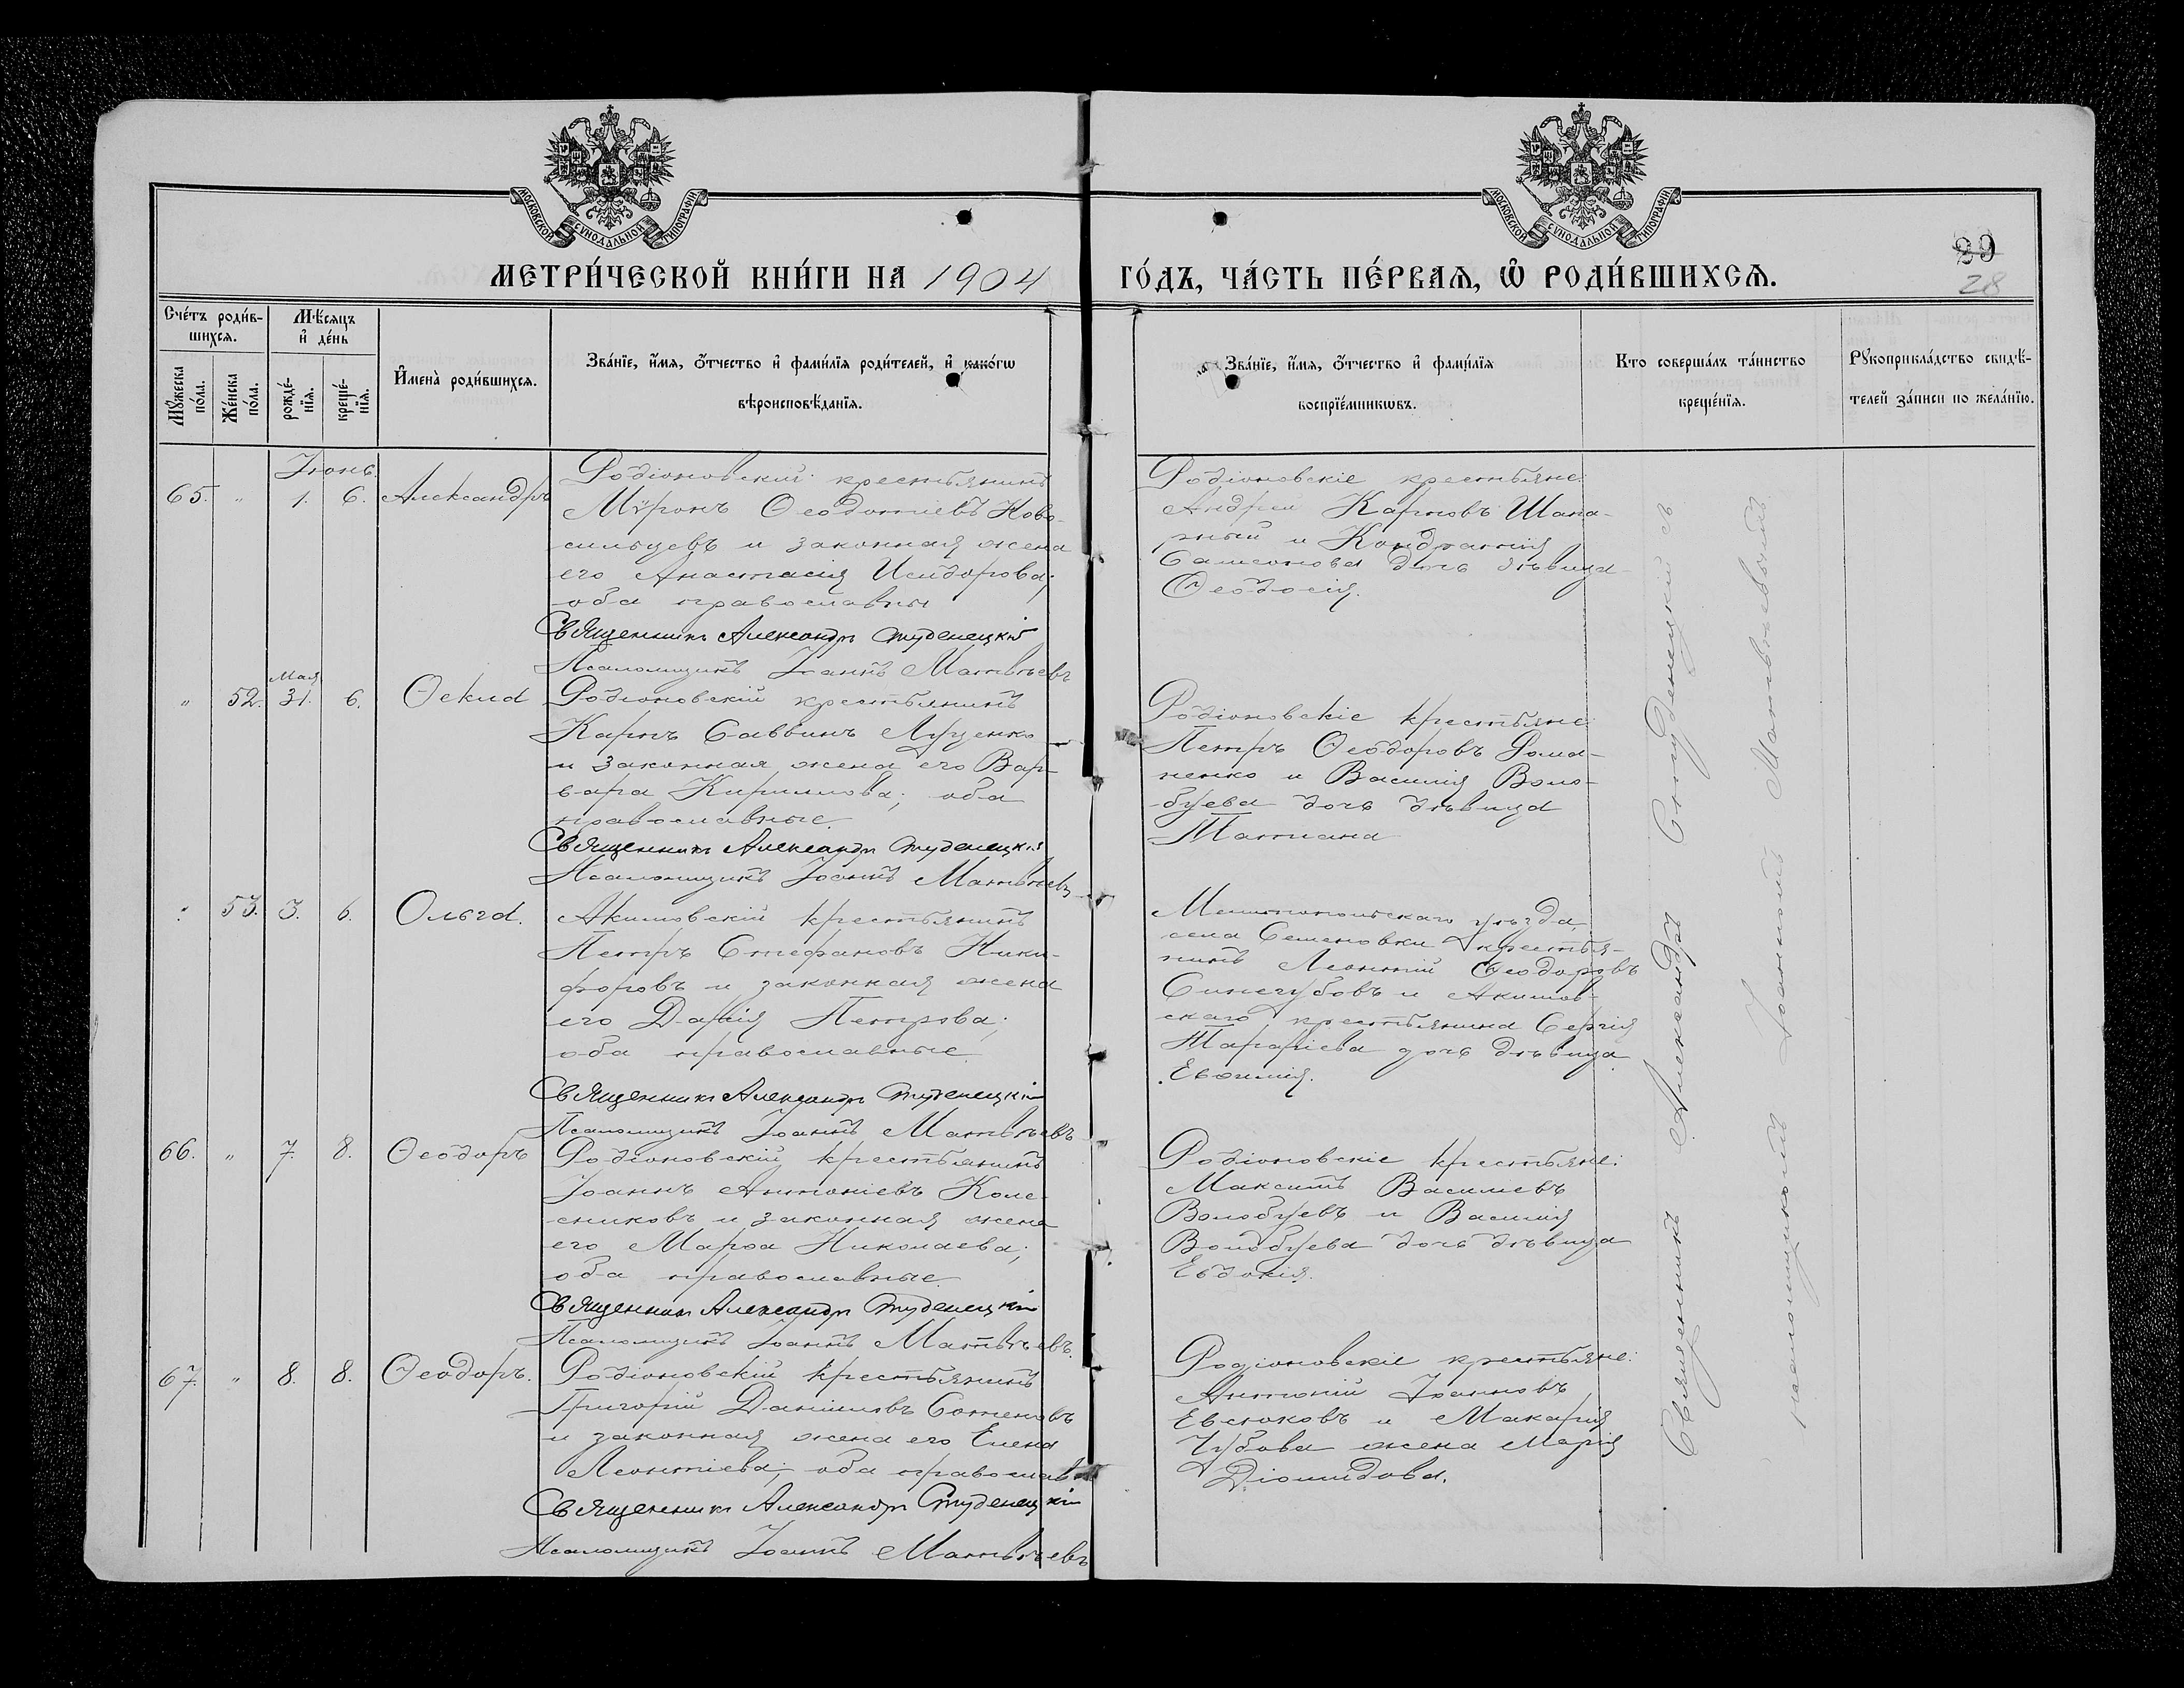 МОСКОВСКОЙ СУНОДАЛЬНОЙ ТИПОГРАФІИ
МОСКОВСКОЙ СУНОДАЛЬНОЙ ТИПОГРАФІИ
29
28
МЕТРИ́ЧЕСКОЙ КНИ́ГИ НА 1904 ГО́ДЪ, ЧА́СТЬ ПЕ́РВАѦ, Ѡ РОДИ́ВШИХСѦ.
Сче́тъ роди́в-
шихсѧ.
Мѣ́сѧцъ
и҆ де́нь
Мꙋ́жеска
по́ла.
Же́нска
по́ла.
рожде́-
нїѧ.
креще́-
нїѧ.
И҆мена̀ роди́вшихсѧ.
Зва́нїе, и҆́мѧ, ѻ҆́тчество и҆ фами́лїѧ роди́телей, и҆ како́гѡ
вѣроисповѣ́данїѧ.
Зва́нїе, и҆́мѧ, ѻ҆́тчество и҆ фами́лїѧ
воспрїе́мникѡвъ.
Кто̀ соверша́лъ та́инство
креще́нїѧ.
Рꙋкоприкла́дство свидѣ́-
телей за́писи по жела́нїю.
Іюнь
65. " 1. 6. Александръ
Родіоновскій крестьянинъ
Мѵронъ Ѳеодотіевъ Ново-
сильцевъ и законная жена
его Анастасія Исидорова;
оба православны
Священникъ Александръ Студенецкій
Псаломщикъ Іоаннъ Матвѣевъ
Родіоновскіе крестьяне:
Андрей Карповъ Шапа-
рный и Кондратія
Самсонова дочь дѣвица
Ѳеодосія.
Мая
" 52. 31. 6. Ѳекла
Родіоновскій крестьянинъ
Карпъ Саввинъ Луценко
и законная жена его Вар-
вара Кириллова; оба
православные
Священникъ Александръ Студенецкій
Псаломщикъ Іоаннъ Матвѣевъ
Родіоновскіе крестьяне:
Петръ Ѳеодоровъ Рома-
ненко и Василія Воло-
буева дочь дѣвица
Татіана
" 53. 3. 6. Ольга.
Акимовскій крестьянинъ
Петръ Стефановъ Ники-
форовъ и законная жена
его Дарія Петрова;
оба православные
Священникъ Александръ Студенецкій
Псаломщикъ Іоаннъ Матвѣевъ
Мелитопольскаго уѣзда,
села Семеновки крестья-
нинъ Леонтій Ѳеодоровъ
Синегубовъ и Акимов-
скаго крестьянина Сергія
дочь дѣвица
Евѳимія.
66. " 7. 8. Ѳеодоръ
Родіоновскій крестьянинъ
Іоаннъ Антоніевъ Коле-
сниковъ и законная жена
его Марѳа Николаева;
оба православные
Священникъ Александръ Студенецкій
Псаломщикъ Іоаннъ Матвѣевъ.
Родіоновскіе крестьяне:
Максимъ Василіевъ
Волобуевъ и Василія
Волобуева дочь дѣвица
Евдокія.
67. " 8. 8. Ѳеодоръ.
Родіоновскій крестьянинъ
Григорій Даніиловъ
и законная жена его Елена
Леонтіева; оба православ
Священникъ Александръ Студенецкій
Псаломщикъ Іоаннъ Матвѣевъ
Родіоновскіе крестьяне:
Антоній Іоанновъ
Евсюковъ и Макарія
Чубова жена Марія
Діомидова.
Священникъ Александръ Студенецкій съ
псаломщикомъ Іоанномъ Матвѣевымъ